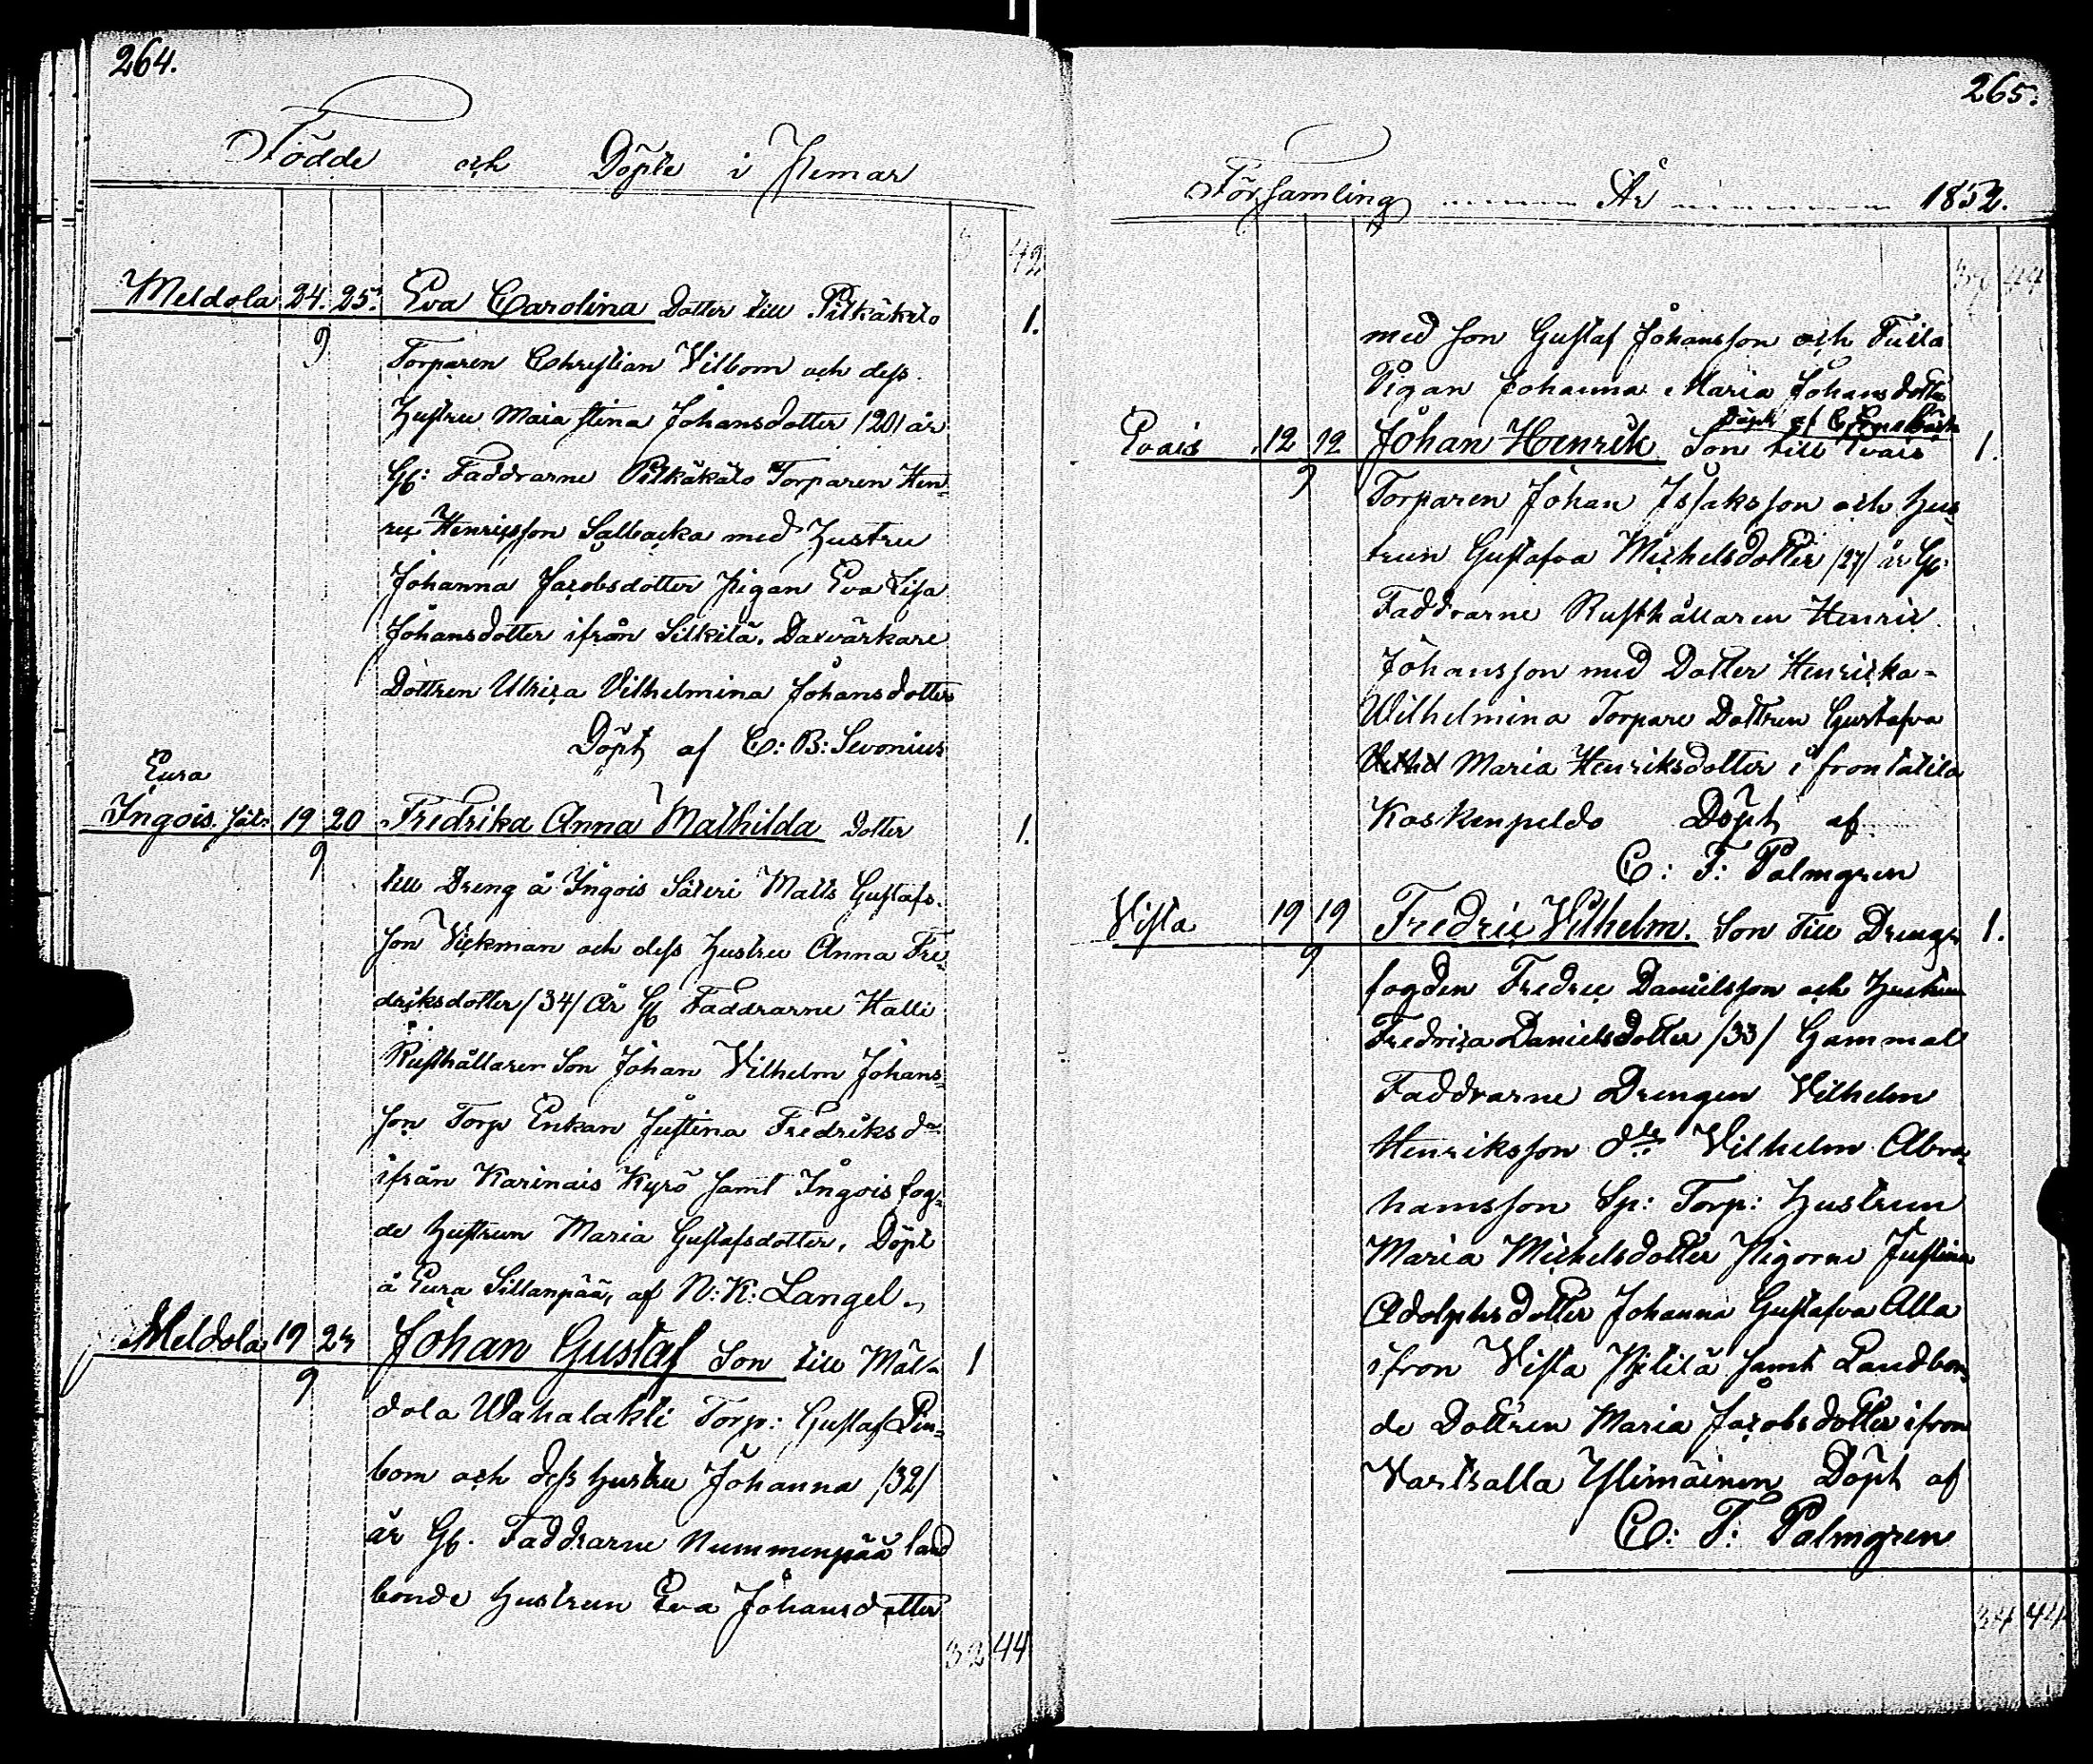 264.
Födde och Döpte i Pemar
3 42
Meldola 24. 25. Eva Carolina Dotter till Pitkäkäto 1.
9
Torparen Chrystian Vilbom och dess
Hustru Maia Stina Johansdotter /20/ år
Gl: Faddrarne Pitkäkäto Torparen Hen-
ric Henricsson Salbacka med Hustru
Johanna Jacobsdotter pigan Eva Lisa
Johansdotter ifrån Silkilä. Daxvärkare
Dottren Ulrica Vilhelmina Johansdotter
Döpt af C: B: Sevonius
Eura
Ingois. Sät: 19 20 Fredrika Anna Mathilda Dotter 1.
9
till Dreng å Ingois Säteri Matts Gustafs-
son Vickman och dess Hustru Anna Fre-
driksdotter /34/ År Gl Faddrarne Halli
Rusthållaren Son Johan Vilhelm Johans-
son Torp Enkan Justina Fredriks dr
ifrån Karinais Kyrö samt Ingois fog-
de hustrun Maria Gustafsdotter. Döpt
å Eura Sillanpää, af N: K: Langel.
Meldola 19 24 Johan Gustaf Son till Mäl- 1
9
dola Wahalakti Torp: Gustaf Lin-
bom och dess hustru Johanna /32/
år Gl. Faddrarne Nummenpää land
bonde hustrun Eva Johansdotter
32 44
265.
Församling År 1852.
44
med son Gustaf Johansson och Tuila
Pigan Johanna Maria Johansdotter
Döpt af C
Evais 12 12 Johan Henrik Son till Evais 1.
9
Torparen Johan Issaksson och hus-
trun Gustafva Michelsdotter /27/ år Gl:
Faddrarne Rusthållaren Henric
Johansson med Dotter Henricka-
Wilhelmina Torpare Dottren Gustafva
Maria Henriksdotter ifron tatila
Koskenpeldo Döpt af
C: F: Palmgren
Vista 19 19 Fredric Vilhelm. Son till Drengs 1.
9
fogden Fredric Danielsson och Hustrun
Fredrica Danielsdotter /33/ Gammal
Faddrarne Drengen Vilhelm
Henriksson dto Vilhelm Abra-
hamsson Sp: Torp: Hustrun
Maria Michelsdotter Pigorne Justina
Adolphsdotter Johanna Gustafva Alla
ifron Vista Kytilä samt Landbon-
de Dottren Maria Jacobsdotter ifron
Vartsalla Ylimäinen Döpt af
C: F: Palmgren
34 44